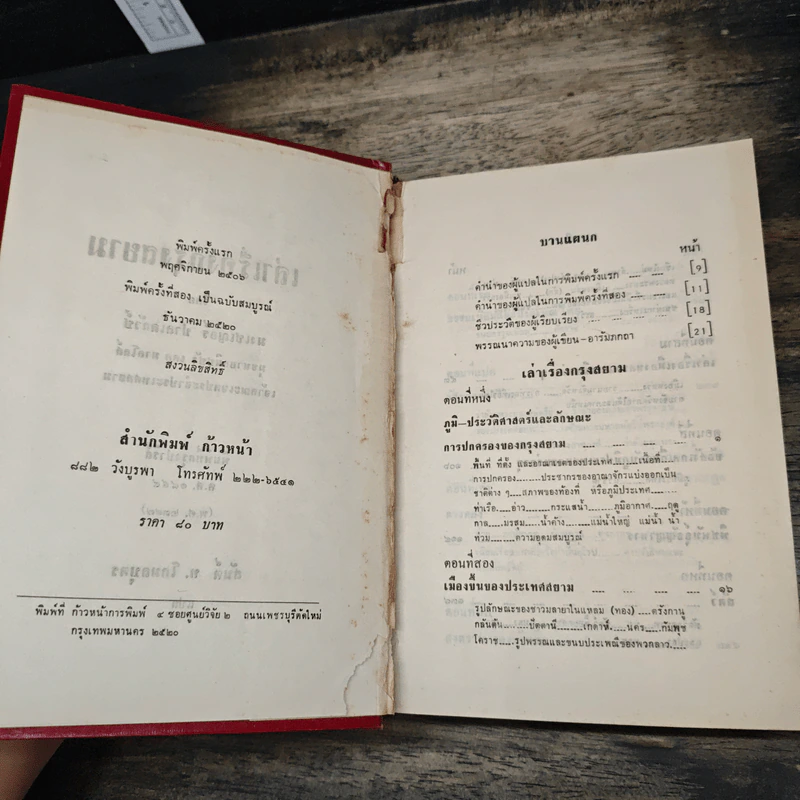 พิมพ์ครั้งแรก
พฤศจิกายน ๒๕๐๖
พิมพ์ครั้งที่สอง เป็นฉบับสมบูรณ์
ธันวาคม ๒๕๒๐
สงวนลิขสิทธิ์
สำนักพิมพ์ ก้าวหน้า
๘๘๒ วังบูรพา โทรศัพท์ ๒๒๒-๖๕๔๑
ราคา ๘๐ บาท
พิมพ์ที่ ก้าวหน้าการพิมพ์ ๔ ซอยศูนย์วิจัย ๒ ถนนเพชรบุรีตัดใหม่
กรุงเทพมหานคร ๒๕๒๐
บานแผนก
หน้า
คำนำของผู้แปลในการพิมพ์ครั้งแรก .... .... [๑]
คำนำของผู้แปลในการพิมพ์ครั้งที่สอง .... .... [11]
ชีวประวัติของผู้เรียบเรียง .... .... .... [18]
พรรณนาความของผู้เขียน-อารัมภกถา [21]
เล่าเรื่องกรุงสยาม
ตอนที่หนึ่ง
ภูมิ-ประวัติศาสตร์และลักษณะ
การปกครองของกรุงสยาม .... .... .... .... ๑
พื้นที่ ที่ตั้ง และอาณาเขตของประเทศ....เนื้อที่....
การปกครอง....ประชากรของอาณาจักรแบ่งออกเป็น
ชาติต่าง ๆ....สภาพของท้องที่ หรือภูมิประเทศ....
ท่าเรือ....อ่าว....กระแสน้ำ....ภูมิอากาศ....ฤดู
กาล....มรสุม....น้ำค้าง....แม่น้ำใหญ่ แม่น้ำ น้ำ
ท่วม....ความอุดมสมบูรณ์
ตอนที่สอง
เมืองขึ้นของประเทศสยาม .... .... .... .... ๑๖
รูปลักษณะของชาวมลายาในแหลม (ทอง)....ตรังกานู
กลันตัน....ปัตตานี....เกดาห์....นคร....กัมพุช
โคราช....รูปพรรณและขนบประเพณีของพวกลาว....